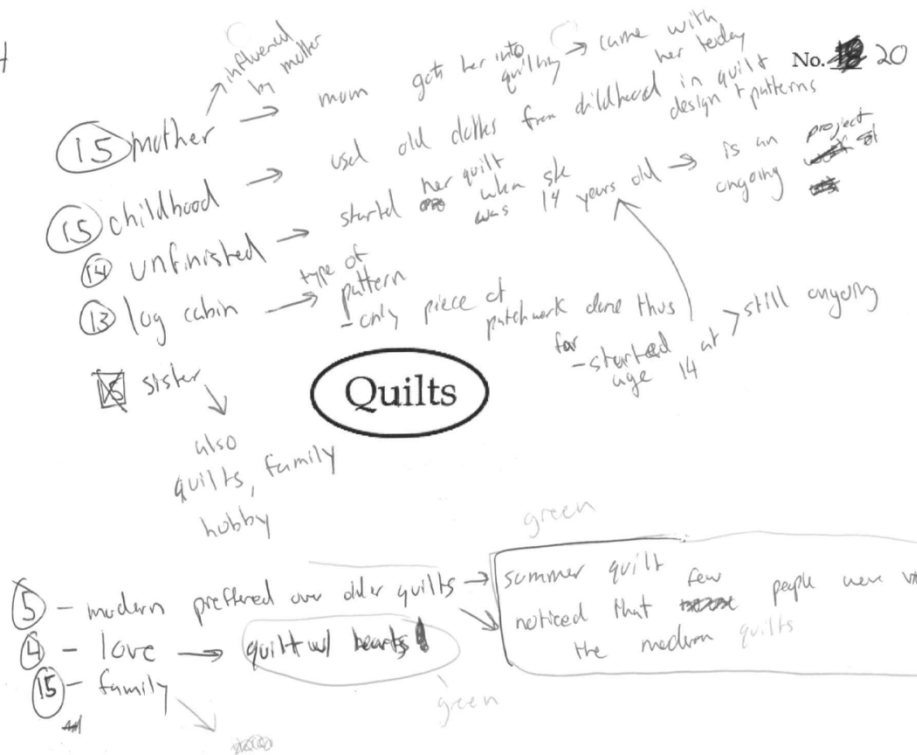 No. 20
influenced
by mother
15 mother → mom got her into
quilting → came with
her today
15 childhood → used old clothes from childhood in quilt
design + patterns
14 unfinished → started her quilt
when she
was 14 years old → is an
ongoing project
13 log cabin → type of
pattern
- only piece of
patchwork done thus
far
- started at
age 14 > still ongoing
sister
also
quilts, family
hobby
Quilts
green
5 - modern preffered over older quilts → summer quilt
noticed that few people were
the modern quilts
4 - love → quilt w/ hearts
green
15 - family